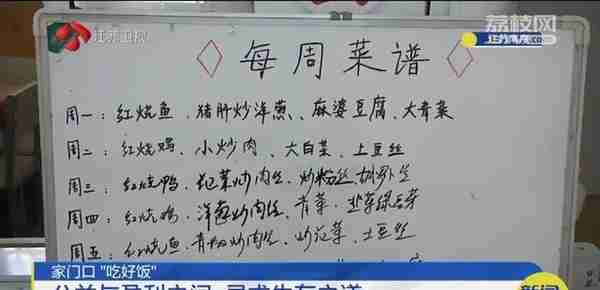 江苏卫视
荔枝网
每周菜谱
周一：红烧鱼、猪肝炒洋葱、麻婆豆腐、大青菜
周二：红烧鸡、小炒肉、大白菜、土豆丝
周三：红烧鸭、炒肉丝、炒粉丝
周四：红烧鸡、洋葱炒肉丝、青菜、韭菜绿豆芽
周五：红烧鱼、青椒炒肉丝、炒花菜、土豆丝
家门口"吃好饭"